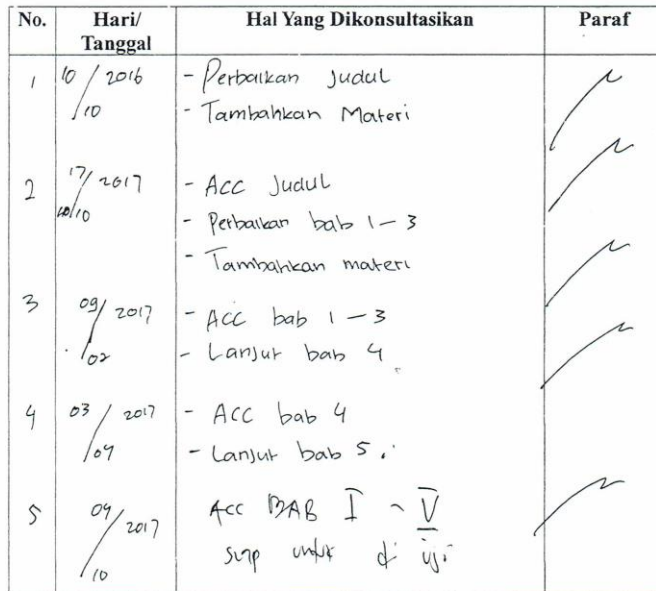 No. Hari/ Tanggal Hal Yang Dikonsultasikan Paraf
1 10/10 2016 - Perbaikan Judul
- Tambahkan Materi
2 17/10 2017 - Acc Judul
- Perbaikan bab 1-3
- Tambahkan materi
3 09/02 2017 - Acc bab 1-3
- Lanjut bab 4
4 03/04 2017 - Acc bab 4
- Lanjut bab 5
5 04/10 2017 Acc BAB I - V
siap untuk di uji